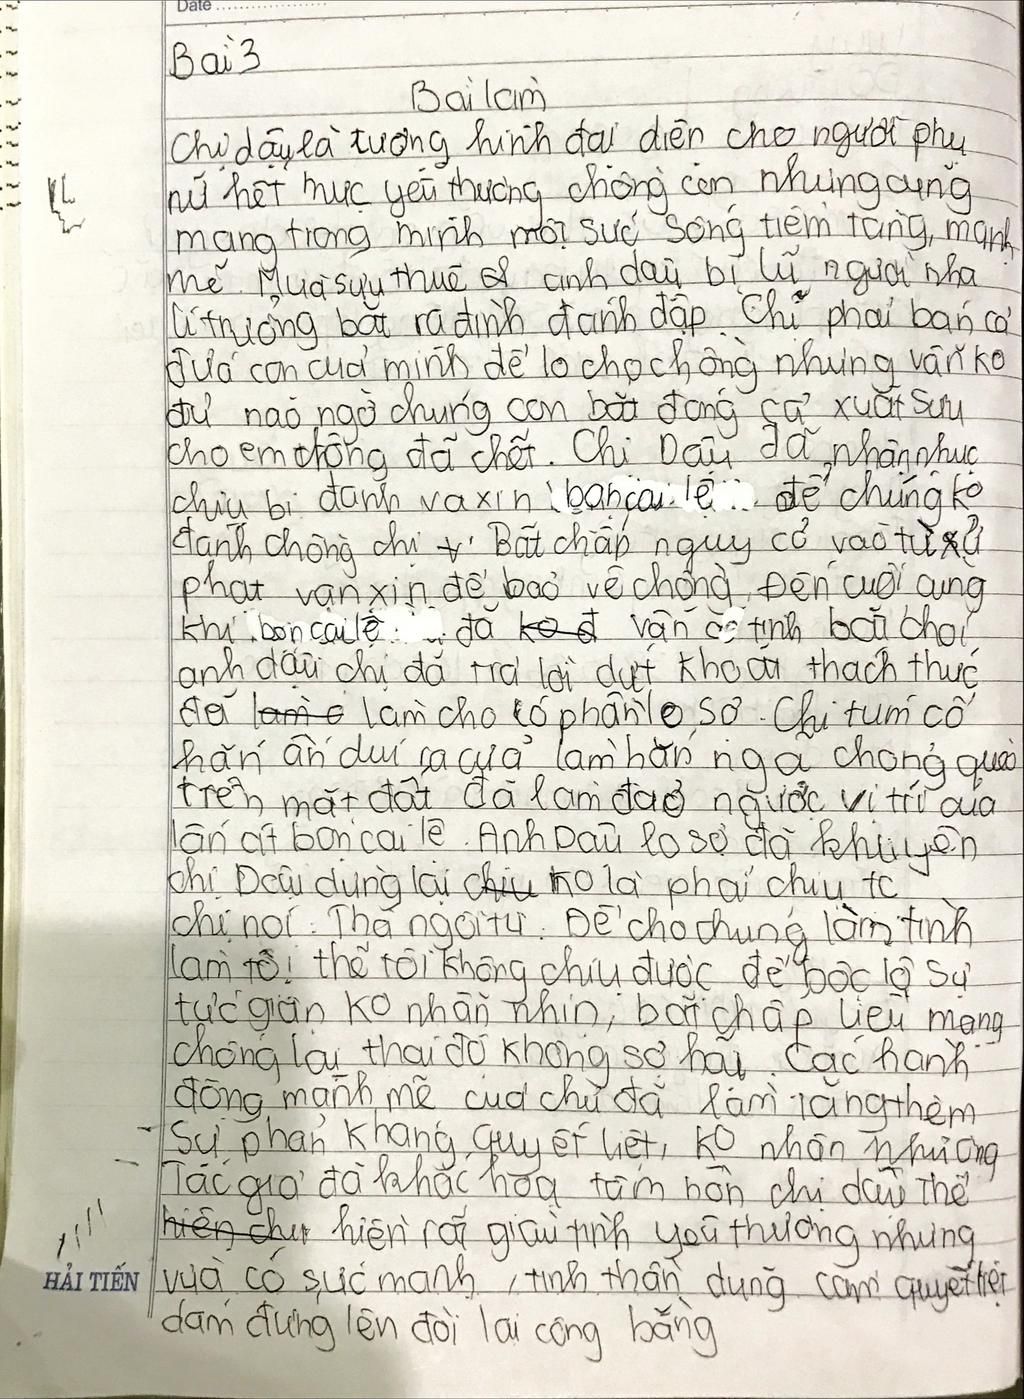 Date
Bài 3
Bài làm
Chị dậu là tượng hình đại diện cho người phụ
nữ hết mực yêu thương chồng con nhưng cũng
mang trong mình một sức sống tiềm tàng, mạnh
mẽ. Mùa sưu thuế anh dậu bị lũ người nhà
lí trưởng bắt ra đình đánh đập. Chị phải bán cả
đứa con của mình để lo cho chồng nhưng vẫn ko
đủ nào ngờ chúng còn bắt đóng cả xuất sưu
cho em chồng đã chết. Chị Dậu đã nhẫn nhục
chịu bị đánh va xin bọn cai lệ để chúng ko
đánh chồng chị. Bất chấp nguy cơ vào tù xử
phạt vẫn xin để bảo vệ chồng. Đến cuối cùng
khi bọn cai lệ đã ko đ vẫn cố tình bắt chói
anh dậu chị đã trả lời dứt khoát thách thức
để làm c làm cho có phần lo sợ. Chị túm cổ
hắn ấn dúi ra cửa làm hắn ngã chỏng quèo
trên mặt đất đã làm đảo ngược vị trí của
lấn át bọn cai lệ. Anh Dậu lo sợ đã khuyên
chị Dậu dừng lại chịu ko là phải chịu tc
chị nói: Thà ngồi tù. Để cho chúng làm tình
làm tội thế tôi không chịu được để bộc lộ sự
tức giận ko nhẫn nhịn, bất chấp liều mạng
chống lại thái độ không sợ hãi. Các hành
động mạnh mẽ của chị đã làm tăng thêm
sự phản kháng, quyết liệt, ko nhân nhượng
Tác giả đã khắc họa tâm hồn chị dậu thể
hiện chị hiện rất giàu tình yêu thương nhưng
vừa có sức mạnh, tinh thần dũng cảm quyết liệt
dám đứng lên đòi lại công bằng
HẢI TIẾN